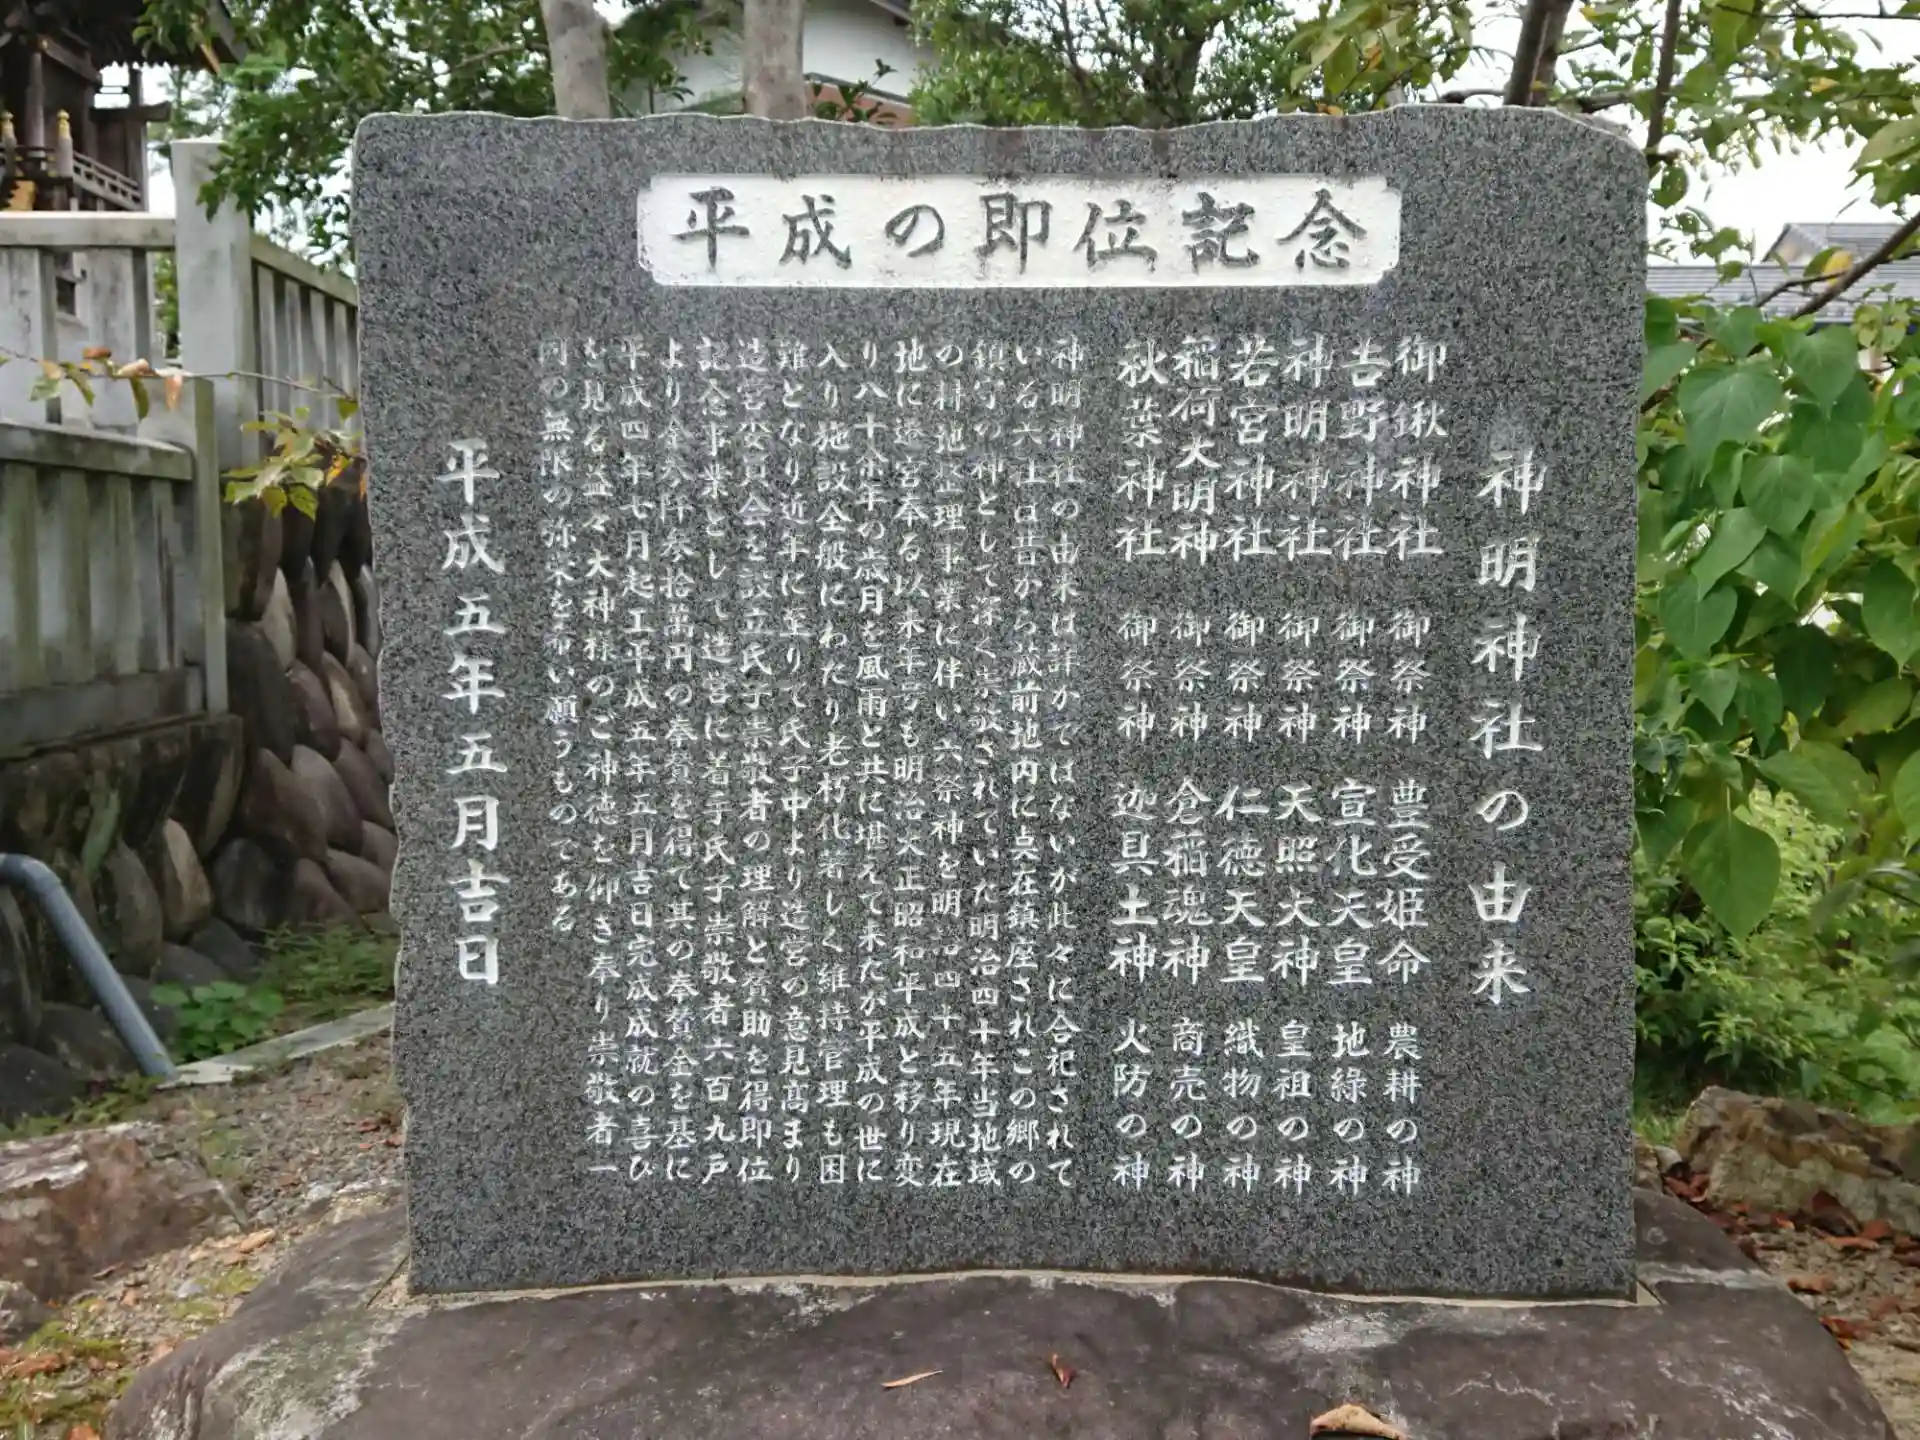 平成の即位記念
神明神社の由来
御鍬神社 御祭神 豊受姫命 農耕の神
吉野神社 御祭神 宣化天皇 地緑の神
神明神社 御祭神 天照大神 皇祖の神
若宮神社 御祭神 仁徳天皇 織物の神
稲荷大明神 御祭神 倉稲魂神 商売の神
秋葉神社 御祭神 迦具土神 火防の神
神明神社の由来は詳かではないが此々に合祀されて
いる六社は昔から蔵前地内に点在鎮座されこの郷の
鎮守の神として深く崇敬されていた明治四十年当地域
の耕地整理事業に伴い六祭神を明治四十五年現在
地に遷宮奉る以来年号も明治大正昭和平成と移り変
り八十余年の歳月を風雨と共に堪えて来たが平成の世に
入り施設全般にわたり老朽化著しく維持管理も困
難となり近年に至りて氏子中より造営の意見高まり
造営委員会を設立氏子崇敬者の理解と賛助を得即位
記念事業として造営に着手氏子崇敬者六百九戸
より金参阡参拾萬円の奉賛を得て其の奉賛金を基に
平成四年七月起工平成五年五月吉日完成成就の喜び
を見る益々大神様のご神徳を仰さ奉り崇敬者一
同の無限の弥栄を希い願うものである
平成五年五月吉日